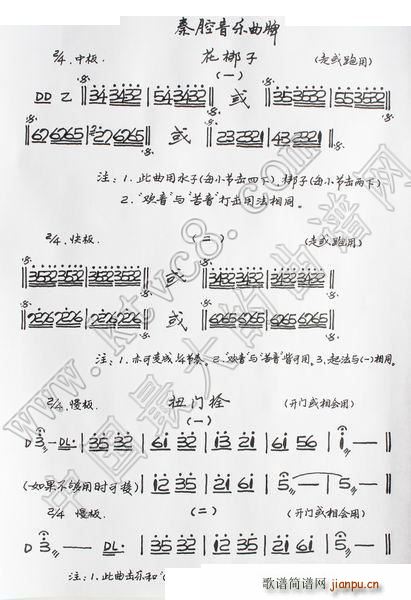 秦腔音乐曲牌
2/4 中板. 花梆子 (走或跑用)
(一)
DD 乙 34 3432 | 54 3432 或 35 3532 | 55 3532
62 6265 | 22 6265 或 23 2321 | 43 2321
注: 1. 此曲用水子(每小节击四下). 梆子(每小节击两下)
2. "欢音"与"苦音"打击用法相同。
2/4 快板. (二) (走或跑用)
3532 3532 | 3532 3532 或 3432 3432 | 3432 3432
2226 2226 | 2226 2226 或 6265 6265 | 6265 6265
2. "欢音"与"苦音"皆可用. 3. 起法与(一)相同.
2/4 慢板. 扭门栓 (开门或相会用)
(一)
D 3 — DL· | 35 32 | 61 32 | 13 21 | 61 56 | 1 — |
(如果不够用时可移) | 12 35 | 21 61 | 5 — | 5 — |
2/4 慢板. (二) (开门或相会用)
D 3 — DL· | 35 32 | 12 35 | 21 61 | 5 — |
注: 1. 此曲击
www.ktvc8.com
中国最大的曲谱网
歌谱简谱网
jianpu.cn